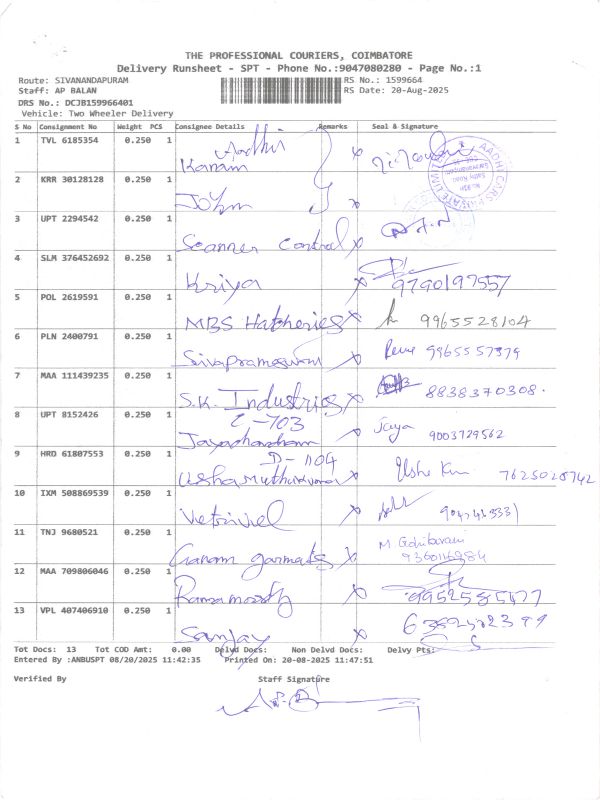 THE PROFESSIONAL COURIERS, COIMBATORE
Delivery Runsheet - SPT - Phone No.:9047080280 - Page No.:1
Route: SIVANANDAPURAM RS No.: 1599664
Staff: AP BALAN RS Date: 20-Aug-2025
DRS No.: DCJB159966401
Vehicle: Two Wheeler Delivery
S No Consignment No Weight PCS Consignee Details Remarks Seal & Signature
1 TVL 6185354 0.250 1 Aadhi
Kanam
2 KRR 30128128 0.250 1 John
3 UPT 2294542 0.250 1 Scanner Control
4 SLM 376452692 0.250 1 Kriya 9790197557
5 POL 2619591 0.250 1 MBS Hatcheries 9965528104
6 PLN 2400791 0.250 1 9965557379
7 MAA 111439235 0.250 1 S.K. Industries 8838370308.
8 UPT 8152426 0.250 1 C-703
Jaya 9003729562
9 HRD 61807553 0.250 1 D-1104
Usha 7625028742
10 IXM 508869539 0.250 1 Vetrivel
11 TNJ 9680521 0.250 1 Ganam garments M
12 MAA 709806046 0.250 1 Ramamoorthy
13 VPL 407406910 0.250 1 Sanjay
Tot Docs: 13 Tot COD Amt: 0.00 Delyd Docs: Non Delvd Docs: Delvy Pts:
Entered By :ANBUSPT 08/20/2025 11:42:35 Printed On: 20-08-2025 11:47:51
Verified By Staff Signature